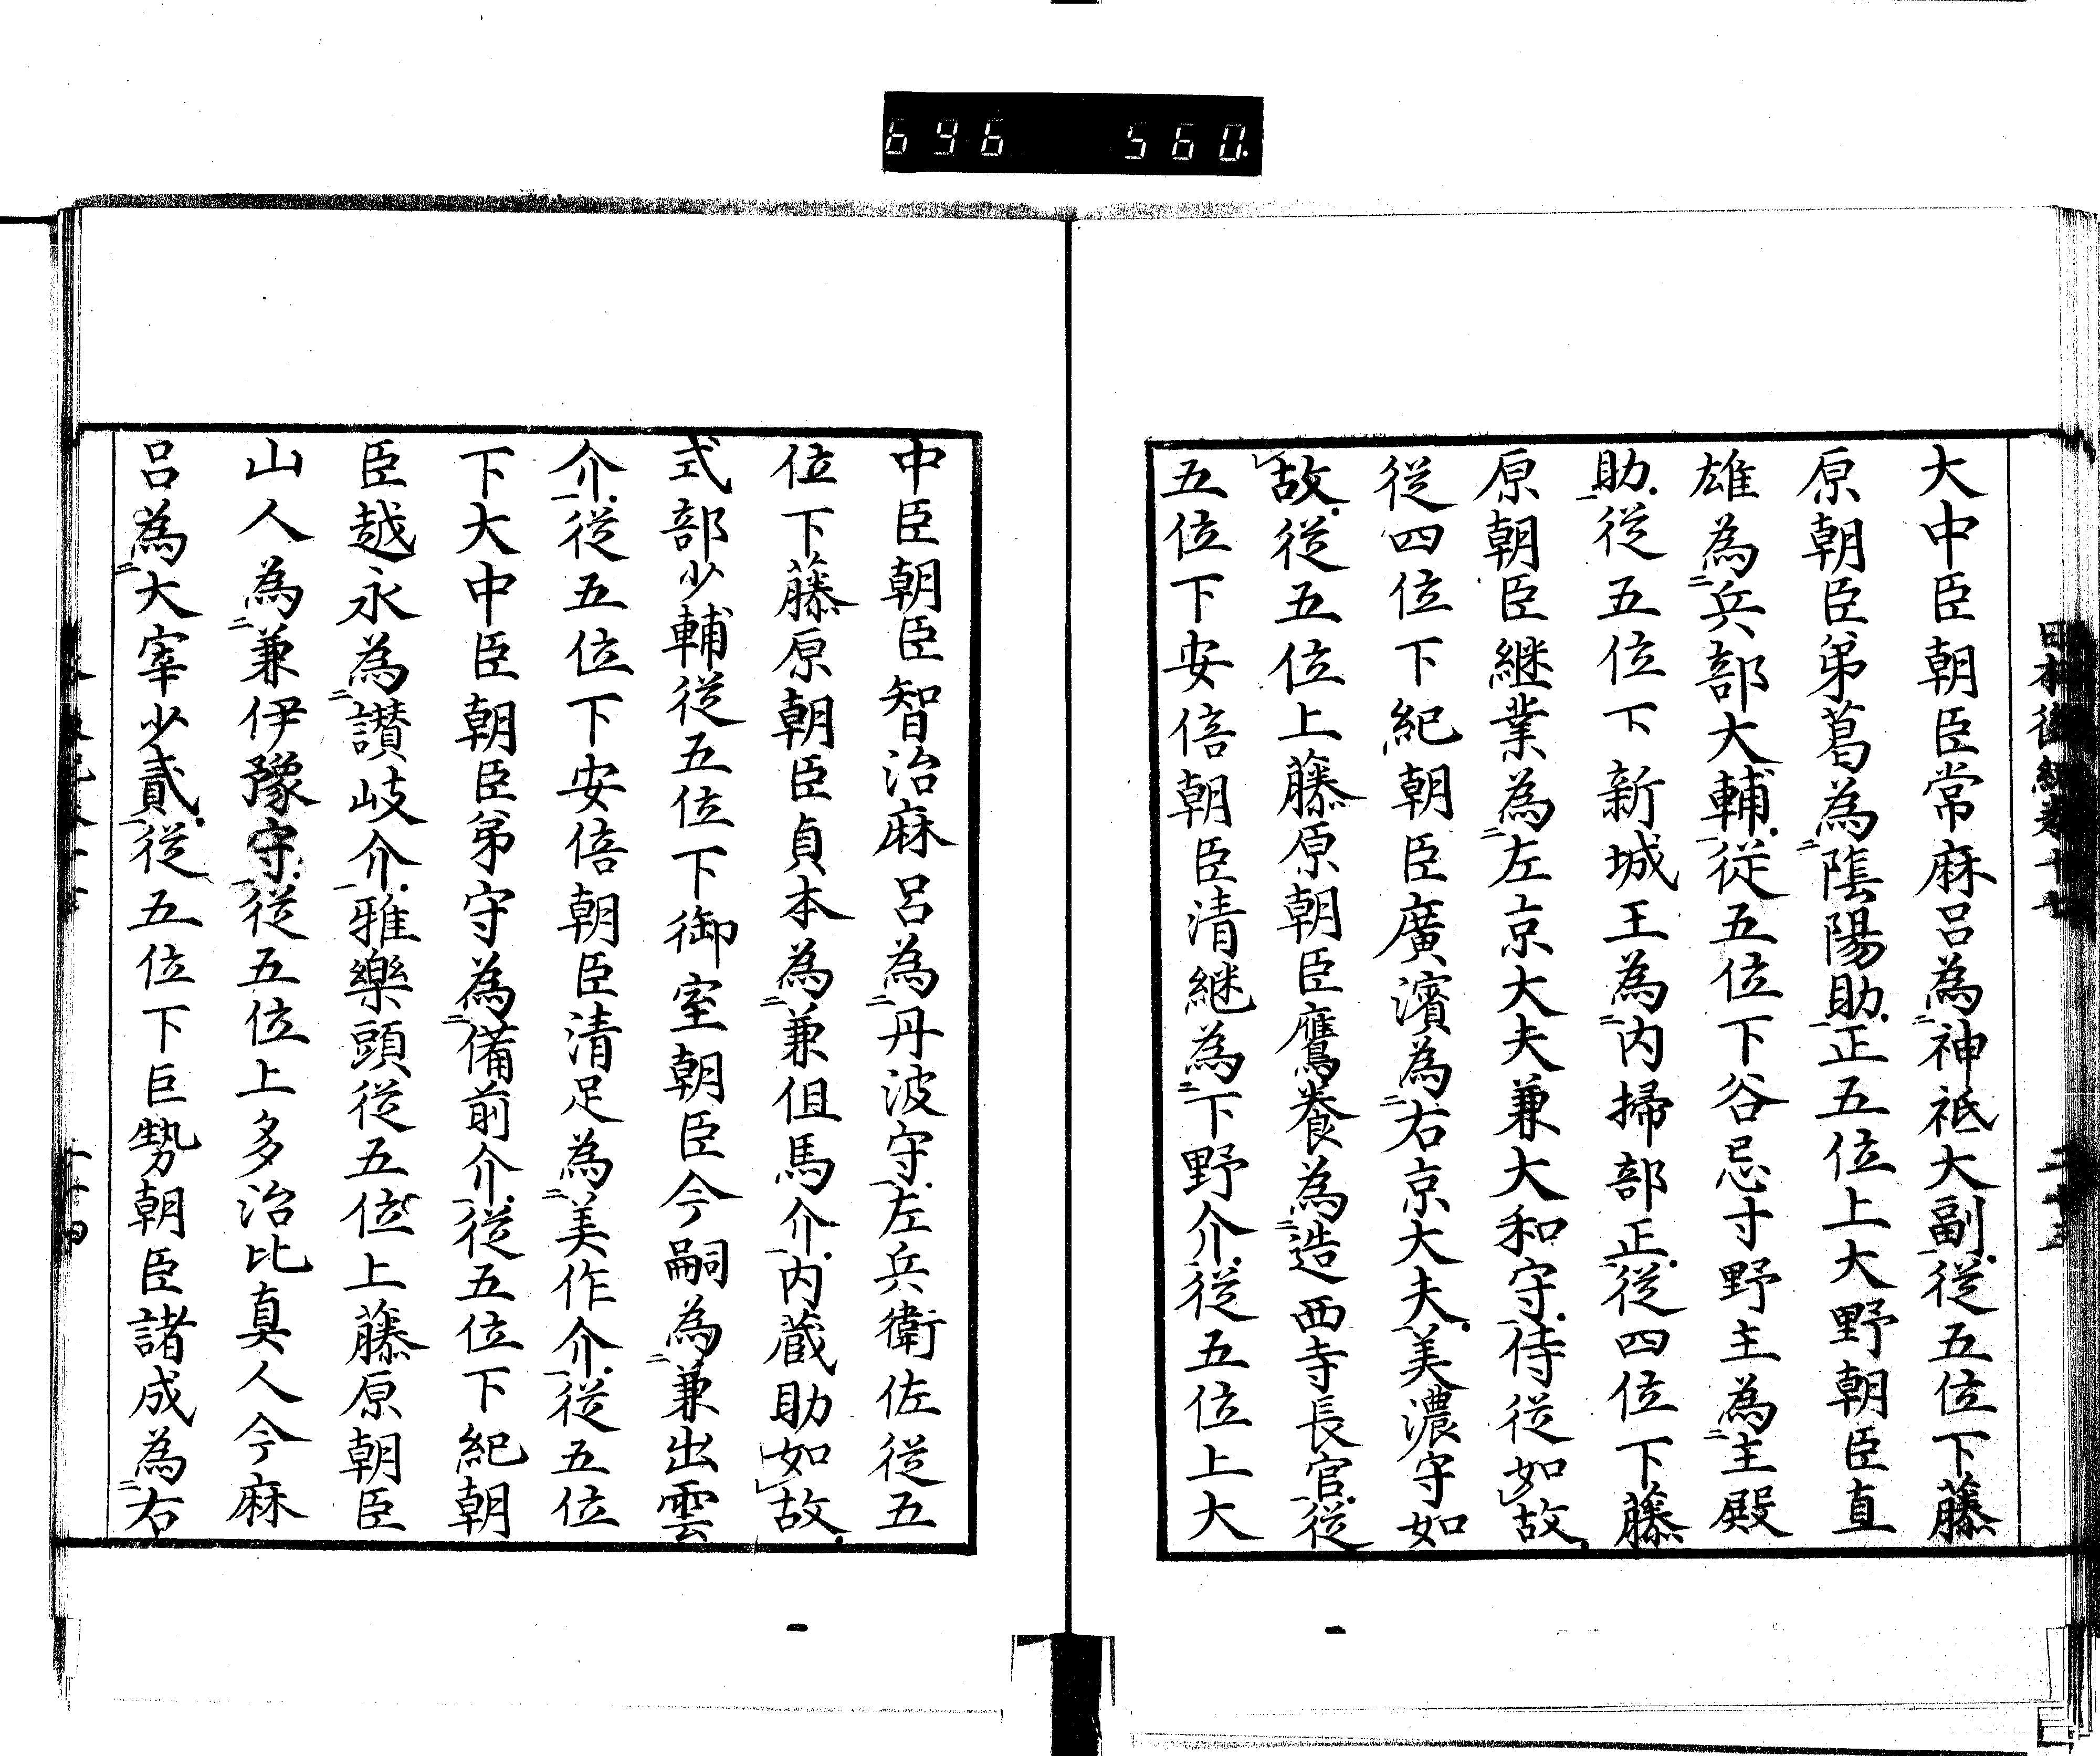 696 560
大中臣朝臣常麻呂為神祇大副從五位下藤
原朝臣弟葛為陰陽助正五位上大野朝臣直
雄為兵部大輔從五位下谷忌寸野主為主殿
助從五位下新城王為內掃部正從四位下藤
原朝臣継業為左京大夫兼大和守侍從如故
從四位下紀朝臣廣濱為右京大夫美濃守如
故從五位上藤原朝臣鷹養為造西寺長官從
五位下安倍朝臣清継為下野介從五位上大
中臣朝臣智治麻呂為丹波守左兵衛佐從五
位下藤原朝臣貞本為兼但馬介內蔵助如故
式部少輔從五位下御室朝臣今嗣為兼出雲
介從五位下安倍朝臣清足為美作介從五位
下大中臣朝臣弟守為備前介從五位下紀朝
臣越永為讃岐介雅樂頭從五位上藤原朝臣
山人為兼伊豫守從五位上多治比真人今麻
呂為大宰少貳從五位下巨勢朝臣諸成為右